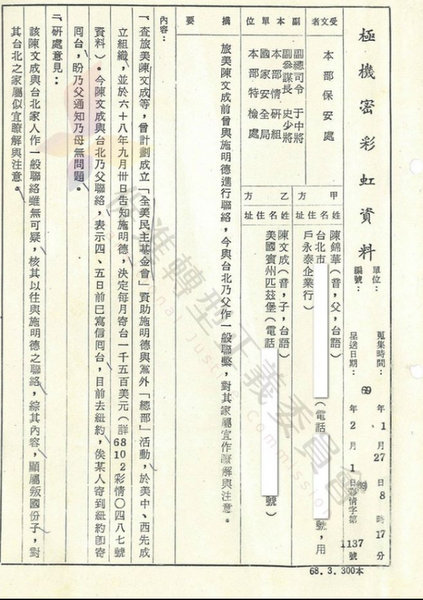 極機密彩虹資料
單位：
編號：
蒐集時間：69年1月27日8時17分
呈送日期：69年2月1日彩情字第1137號
受文者
本部保安處
副本
副總司令 于中將
副參謀長 史少將
本部情研組
國家安全局
本部特檢處
單位
甲方
姓名
陳錦華（音，父，台語）
住址
台北市
（電話
號，用
戶永泰企業行）
乙方
姓名
陳文成（音，子，台語）
住址
美國賓州匹茲堡（電話
號）
摘要
旅美陳文成前曾與施明德進行聯絡，今與台北乃父作一般聯繫，對其家屬宜作瞭解與注意。
內容：
一、查旅美陳文成等，曾計劃成立「全美民主基金會」資助施明德與黨外「總部」活動，於美中、西先成
立組織，並於六十八年九月卅日告知施明德，決定每月寄台一千五百美元（詳68102彩情〇四八七號
資料）。今陳文成與台北乃父聯絡，表示四、五日前已寫信囘台，目前去紐約，俟某人寄到紐約卽寄
囘台，盼乃父通知乃母無問題。
二、研處意見：
該陳文成與台北家人作一般聯絡雖無可疑，核其以往與施明德之聯絡，綜其內容，顯屬叛國份子，對
其台北之家屬似宜瞭解與注意。
68.3.300本
促進轉型正義委員會